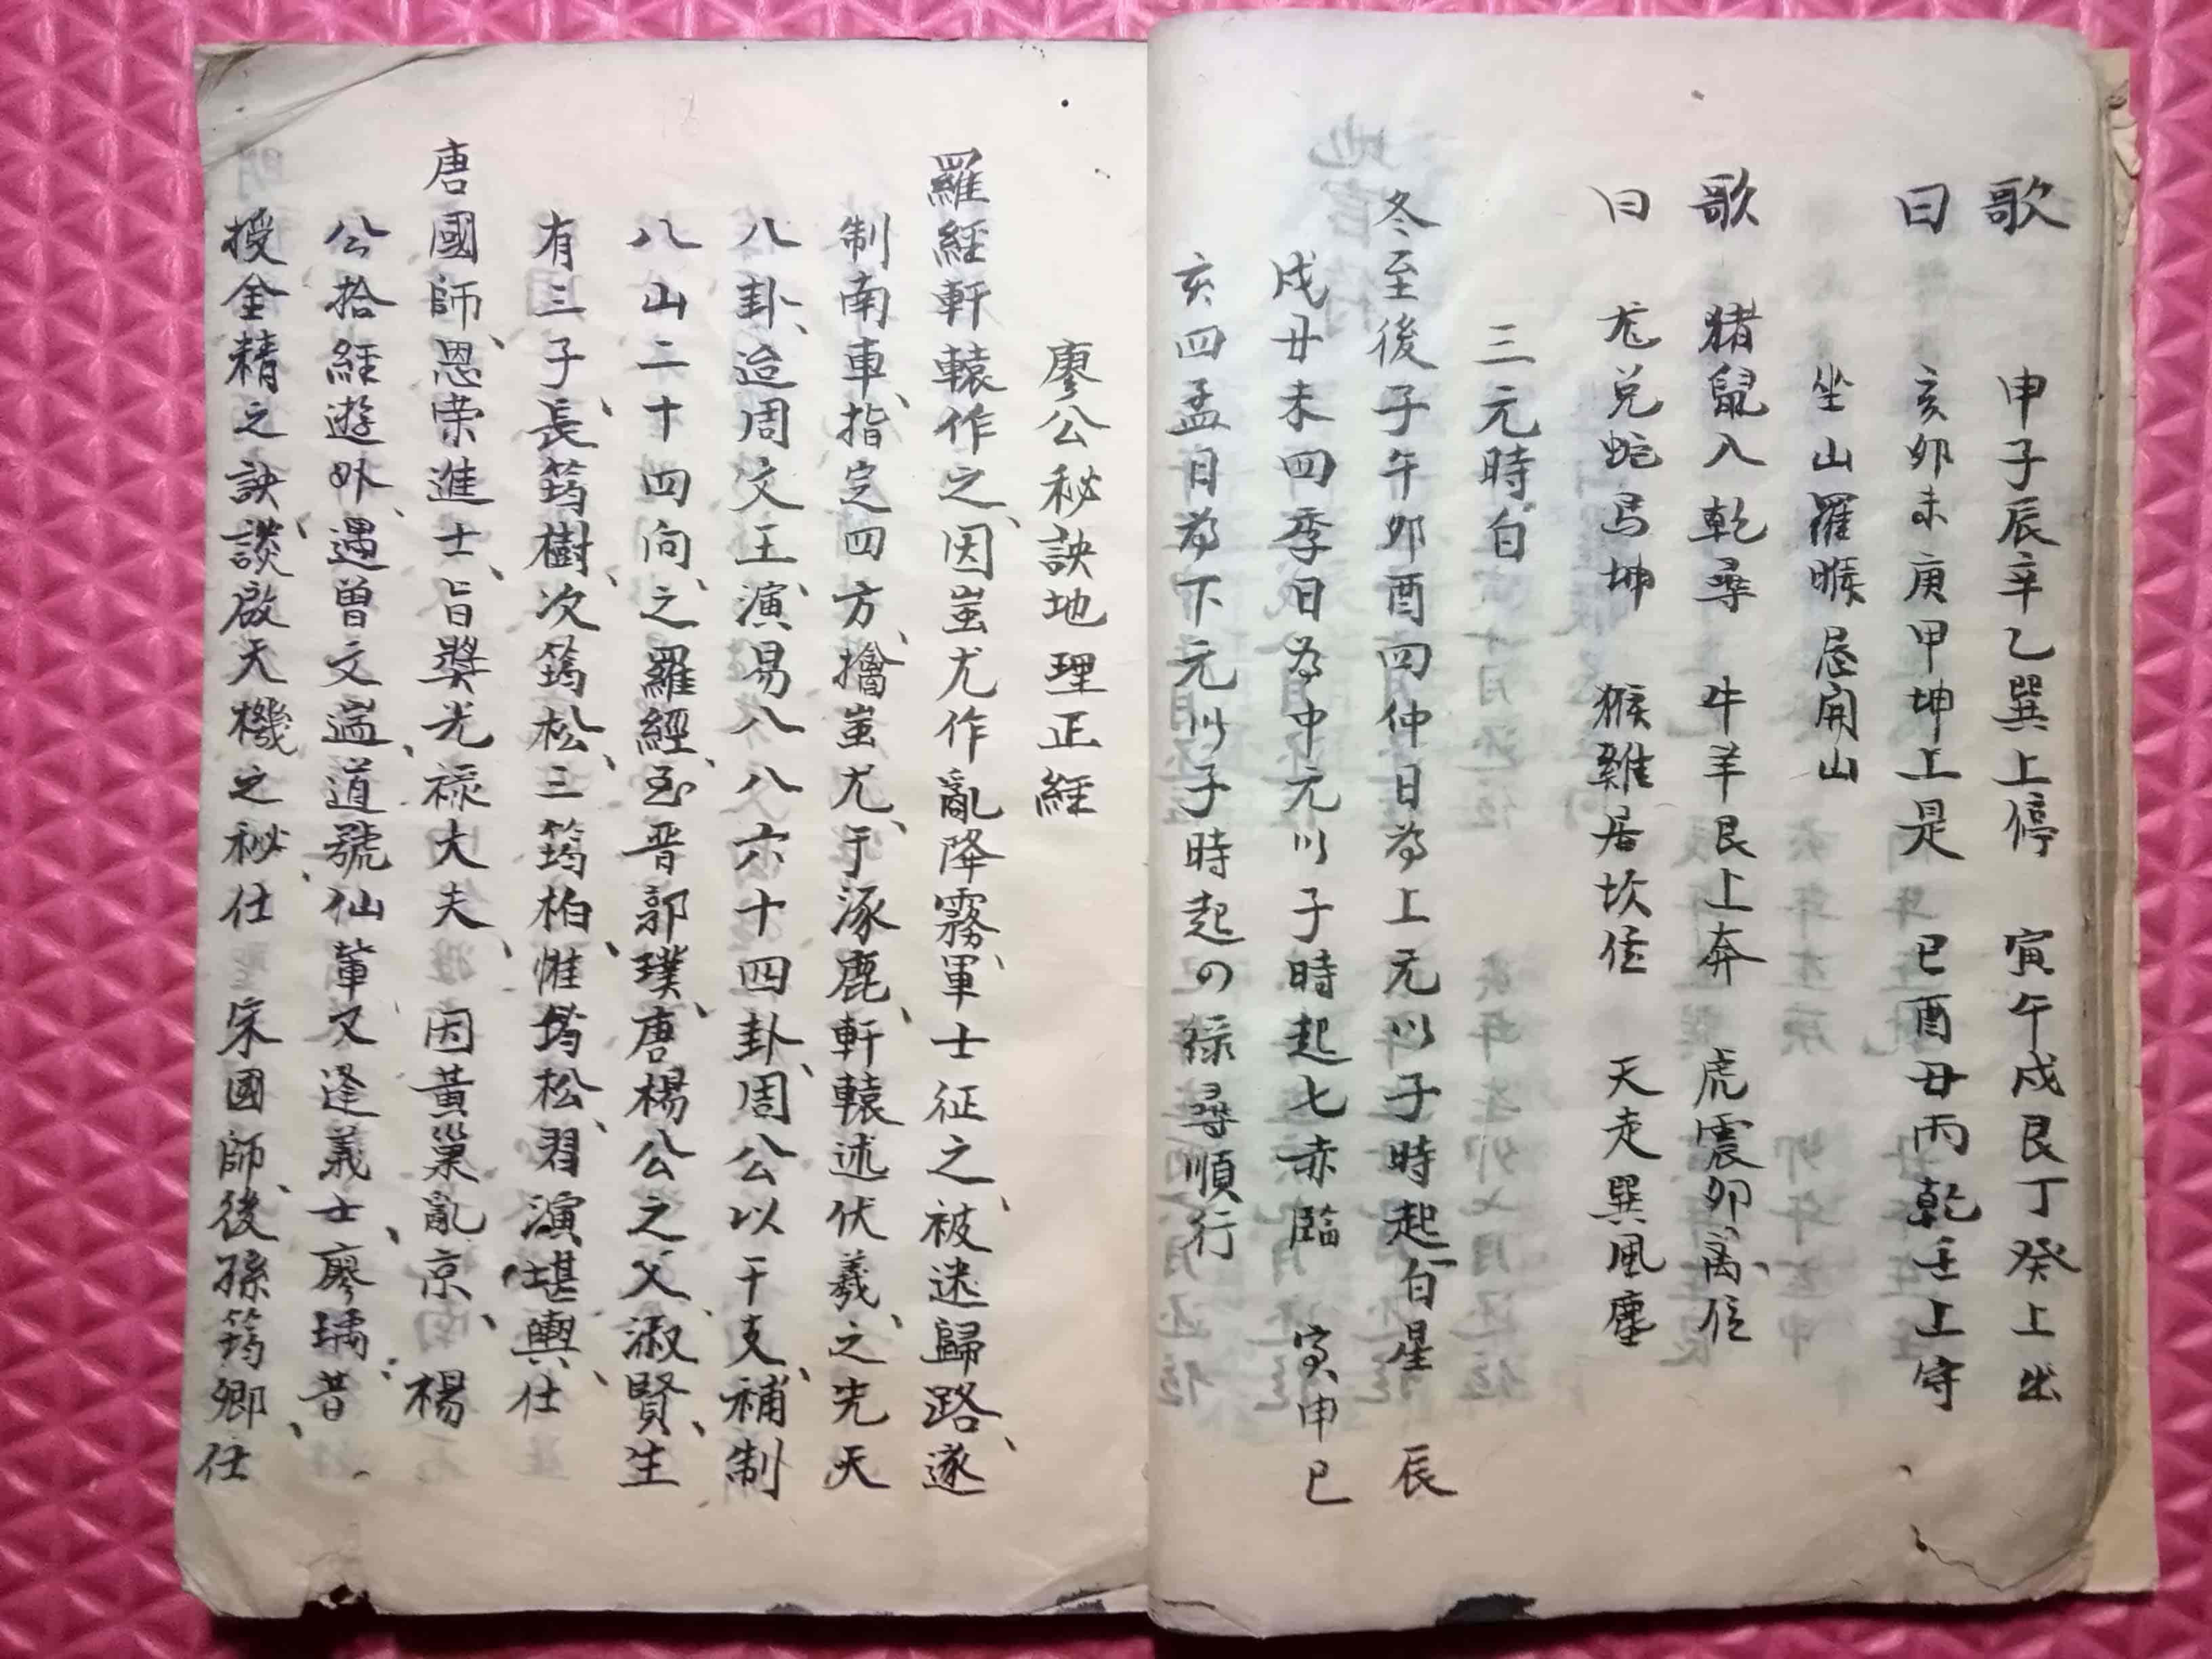 歌 申子辰辛乙巽上停 寅午戍艮丁癸上出
曰 亥卯未庚甲坤上是 巳酉丑丙乾壬上守
坐山羅睺 屋開山
歌 猪鼠入乾尋 牛羊艮上奔 虎震卯离位
曰 尨兑蛇馬坤 猴雞居坎位 天走巽風塵
三元時白
冬至後子午卯酉四仲日為上元以子時起一白星 辰
戍丑未四季日為中元以子時起七赤臨 寅申巳
亥四孟日為下元以子時起の绿尋順行
廖公秘訣地理正經
羅經軒轅作之、因蚩尤作亂降霧、軍士征之、被迷歸路、遂
制南車、指定四方、擒蚩尤、于涿鹿、軒轅述伏羲、之先天
八卦、迨周文王、演易八八六十四卦、周公以干支、補制
八山二十四向、之羅經、至晋郭璞、唐楊公之父、淑賢、生
有三子、長筠樹、次筠松、三筠柏、惟筠松、習演堪輿、仕
唐國師、恩荣進士、旨獎光禄大夫、因黃巢亂京、楊
公拾經遊外、遇曾文辿、道號仙輩又逢義士、廖瑀、昔
授金精之訣、談啟天機之秘、仕宋國師、後孫筠卿、仕